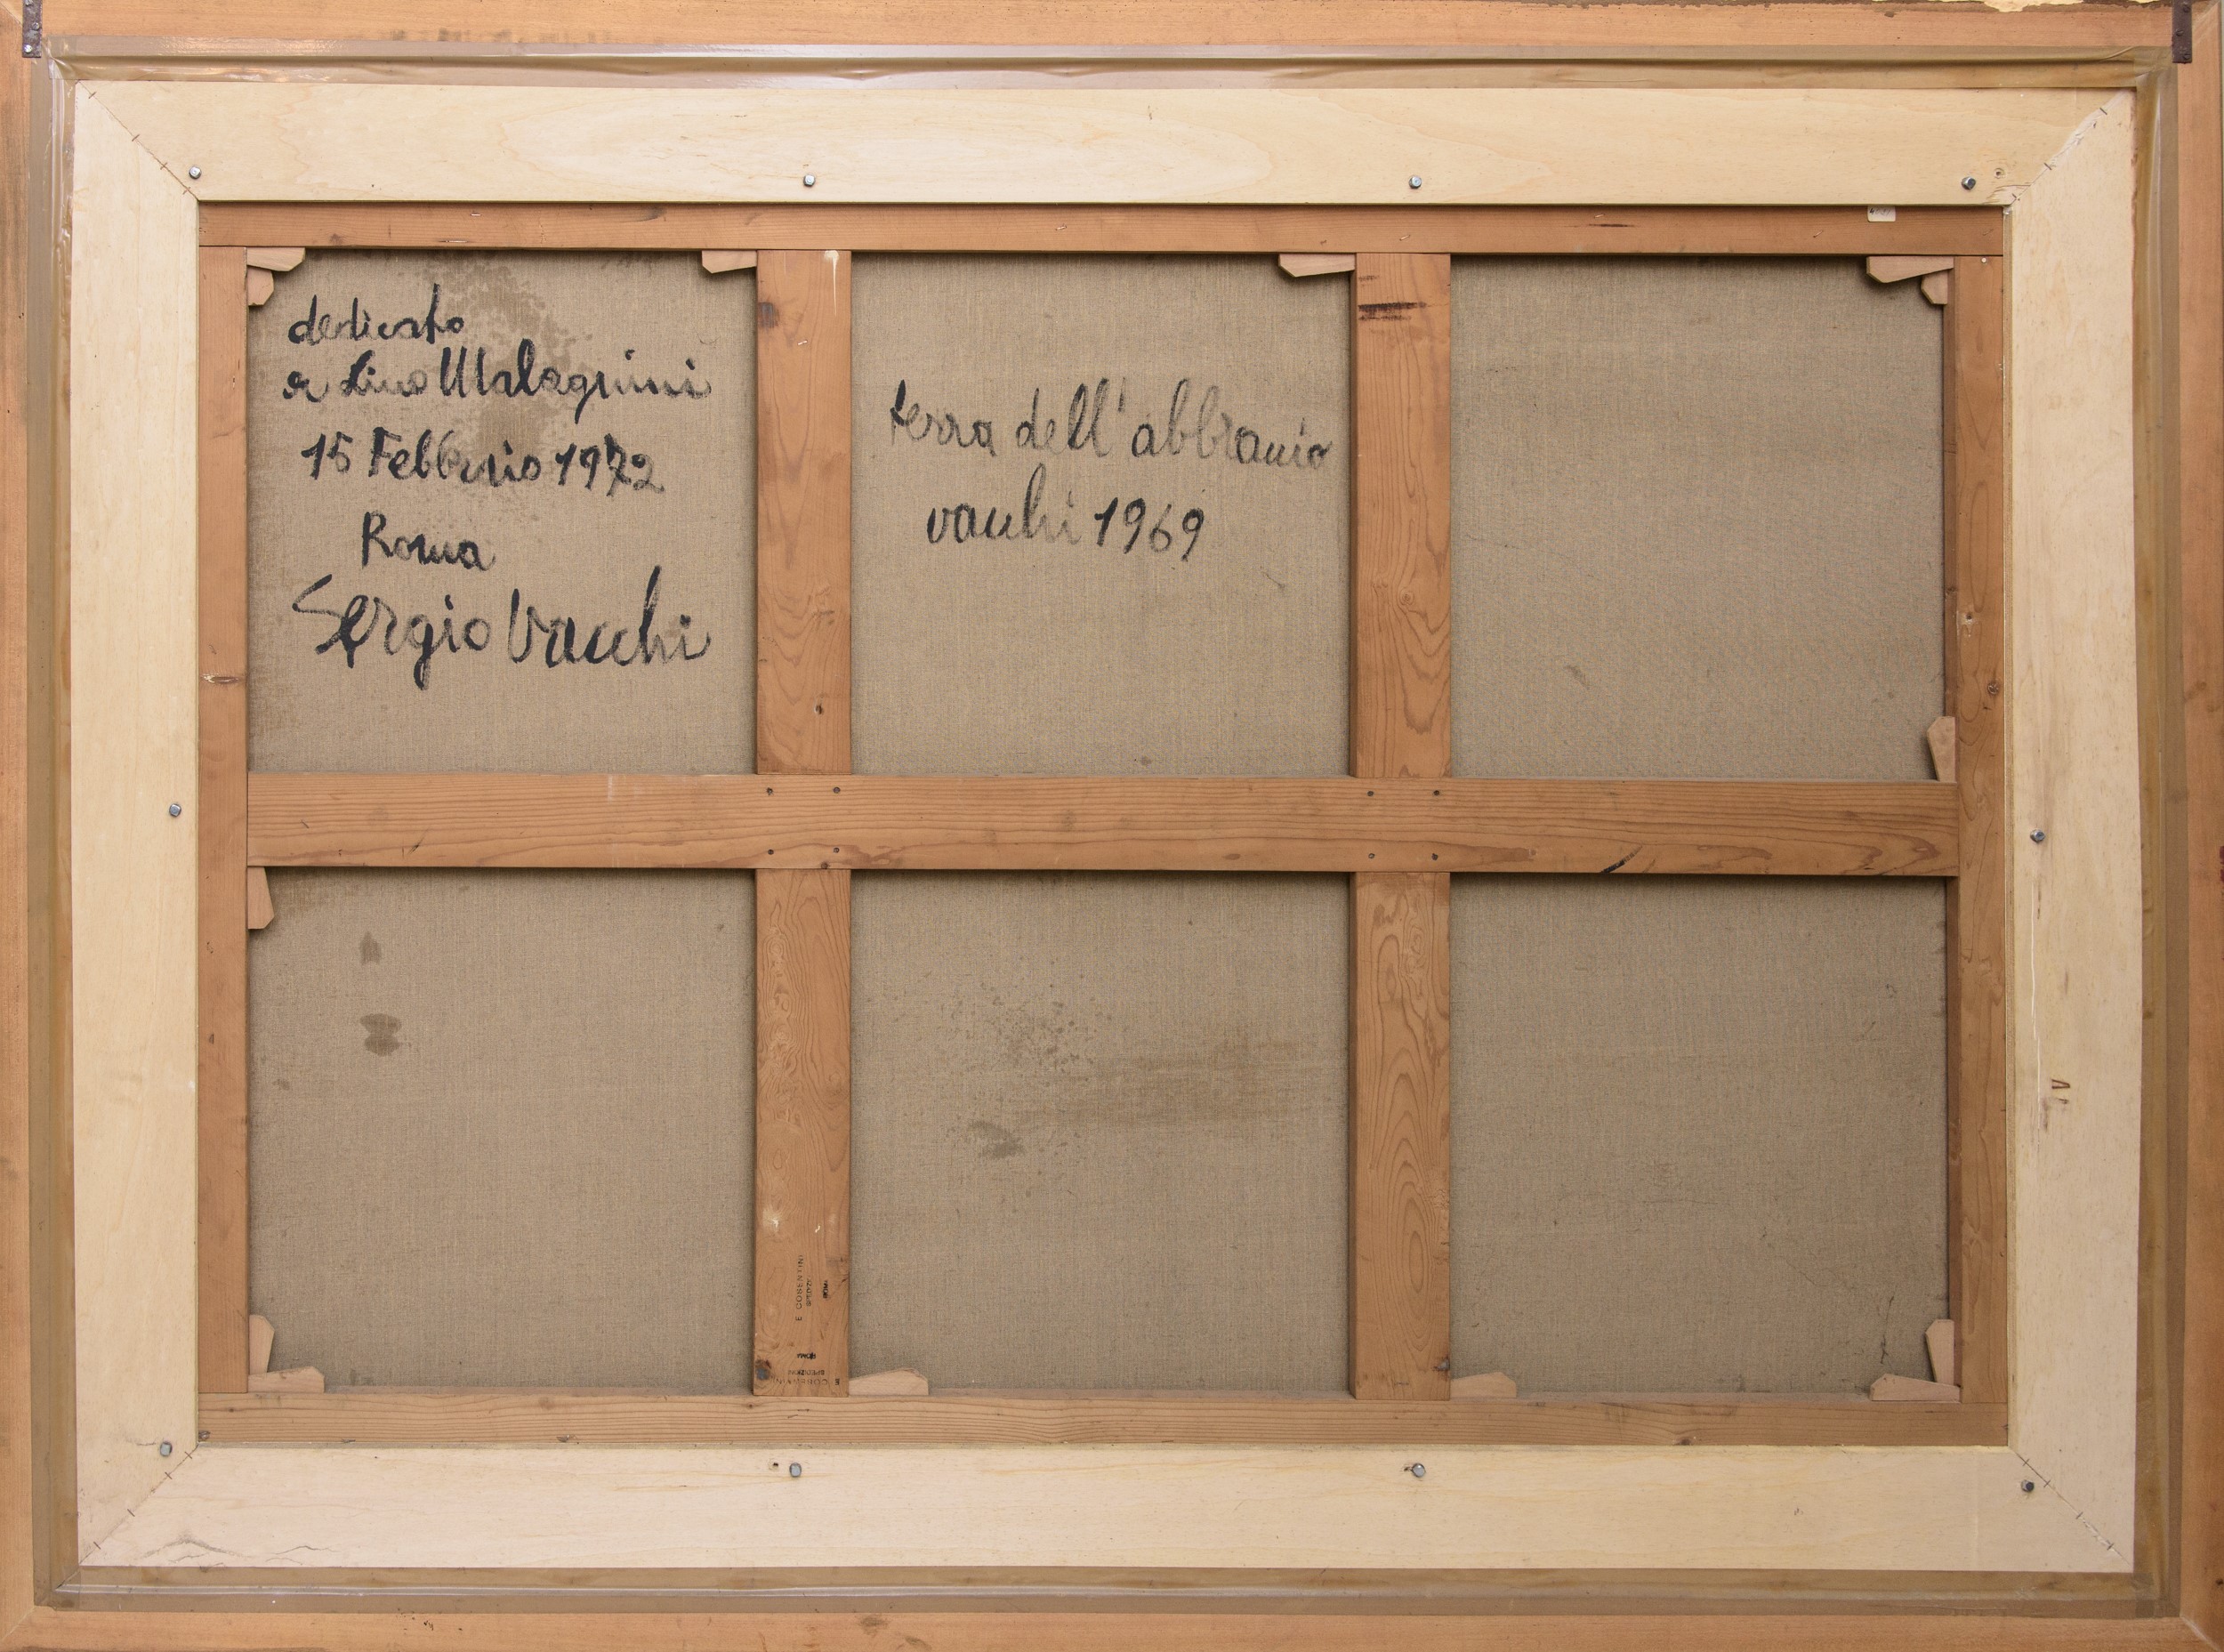 dedicato
a Lino Malagnini
15 Febbraio 1972
Roma
Sergio Vacchi
terra dell'abbraccio
vacchi 1969
E COSENTINO
ROMA
SPEDIZIONI